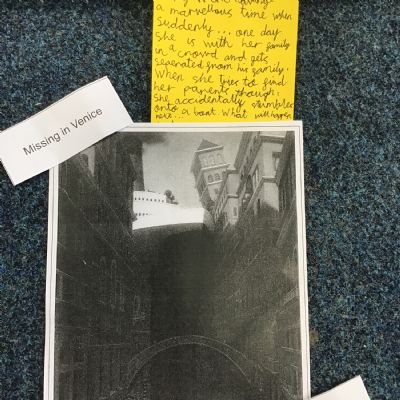 a marvellous time when
Suddenly... one day
she is with her family
in a crowd and gets
seperated from his family.
When she tries to find
her parents though.
She accidentally stumbles
onto a boat. What will happen
here...
Missing in Venice